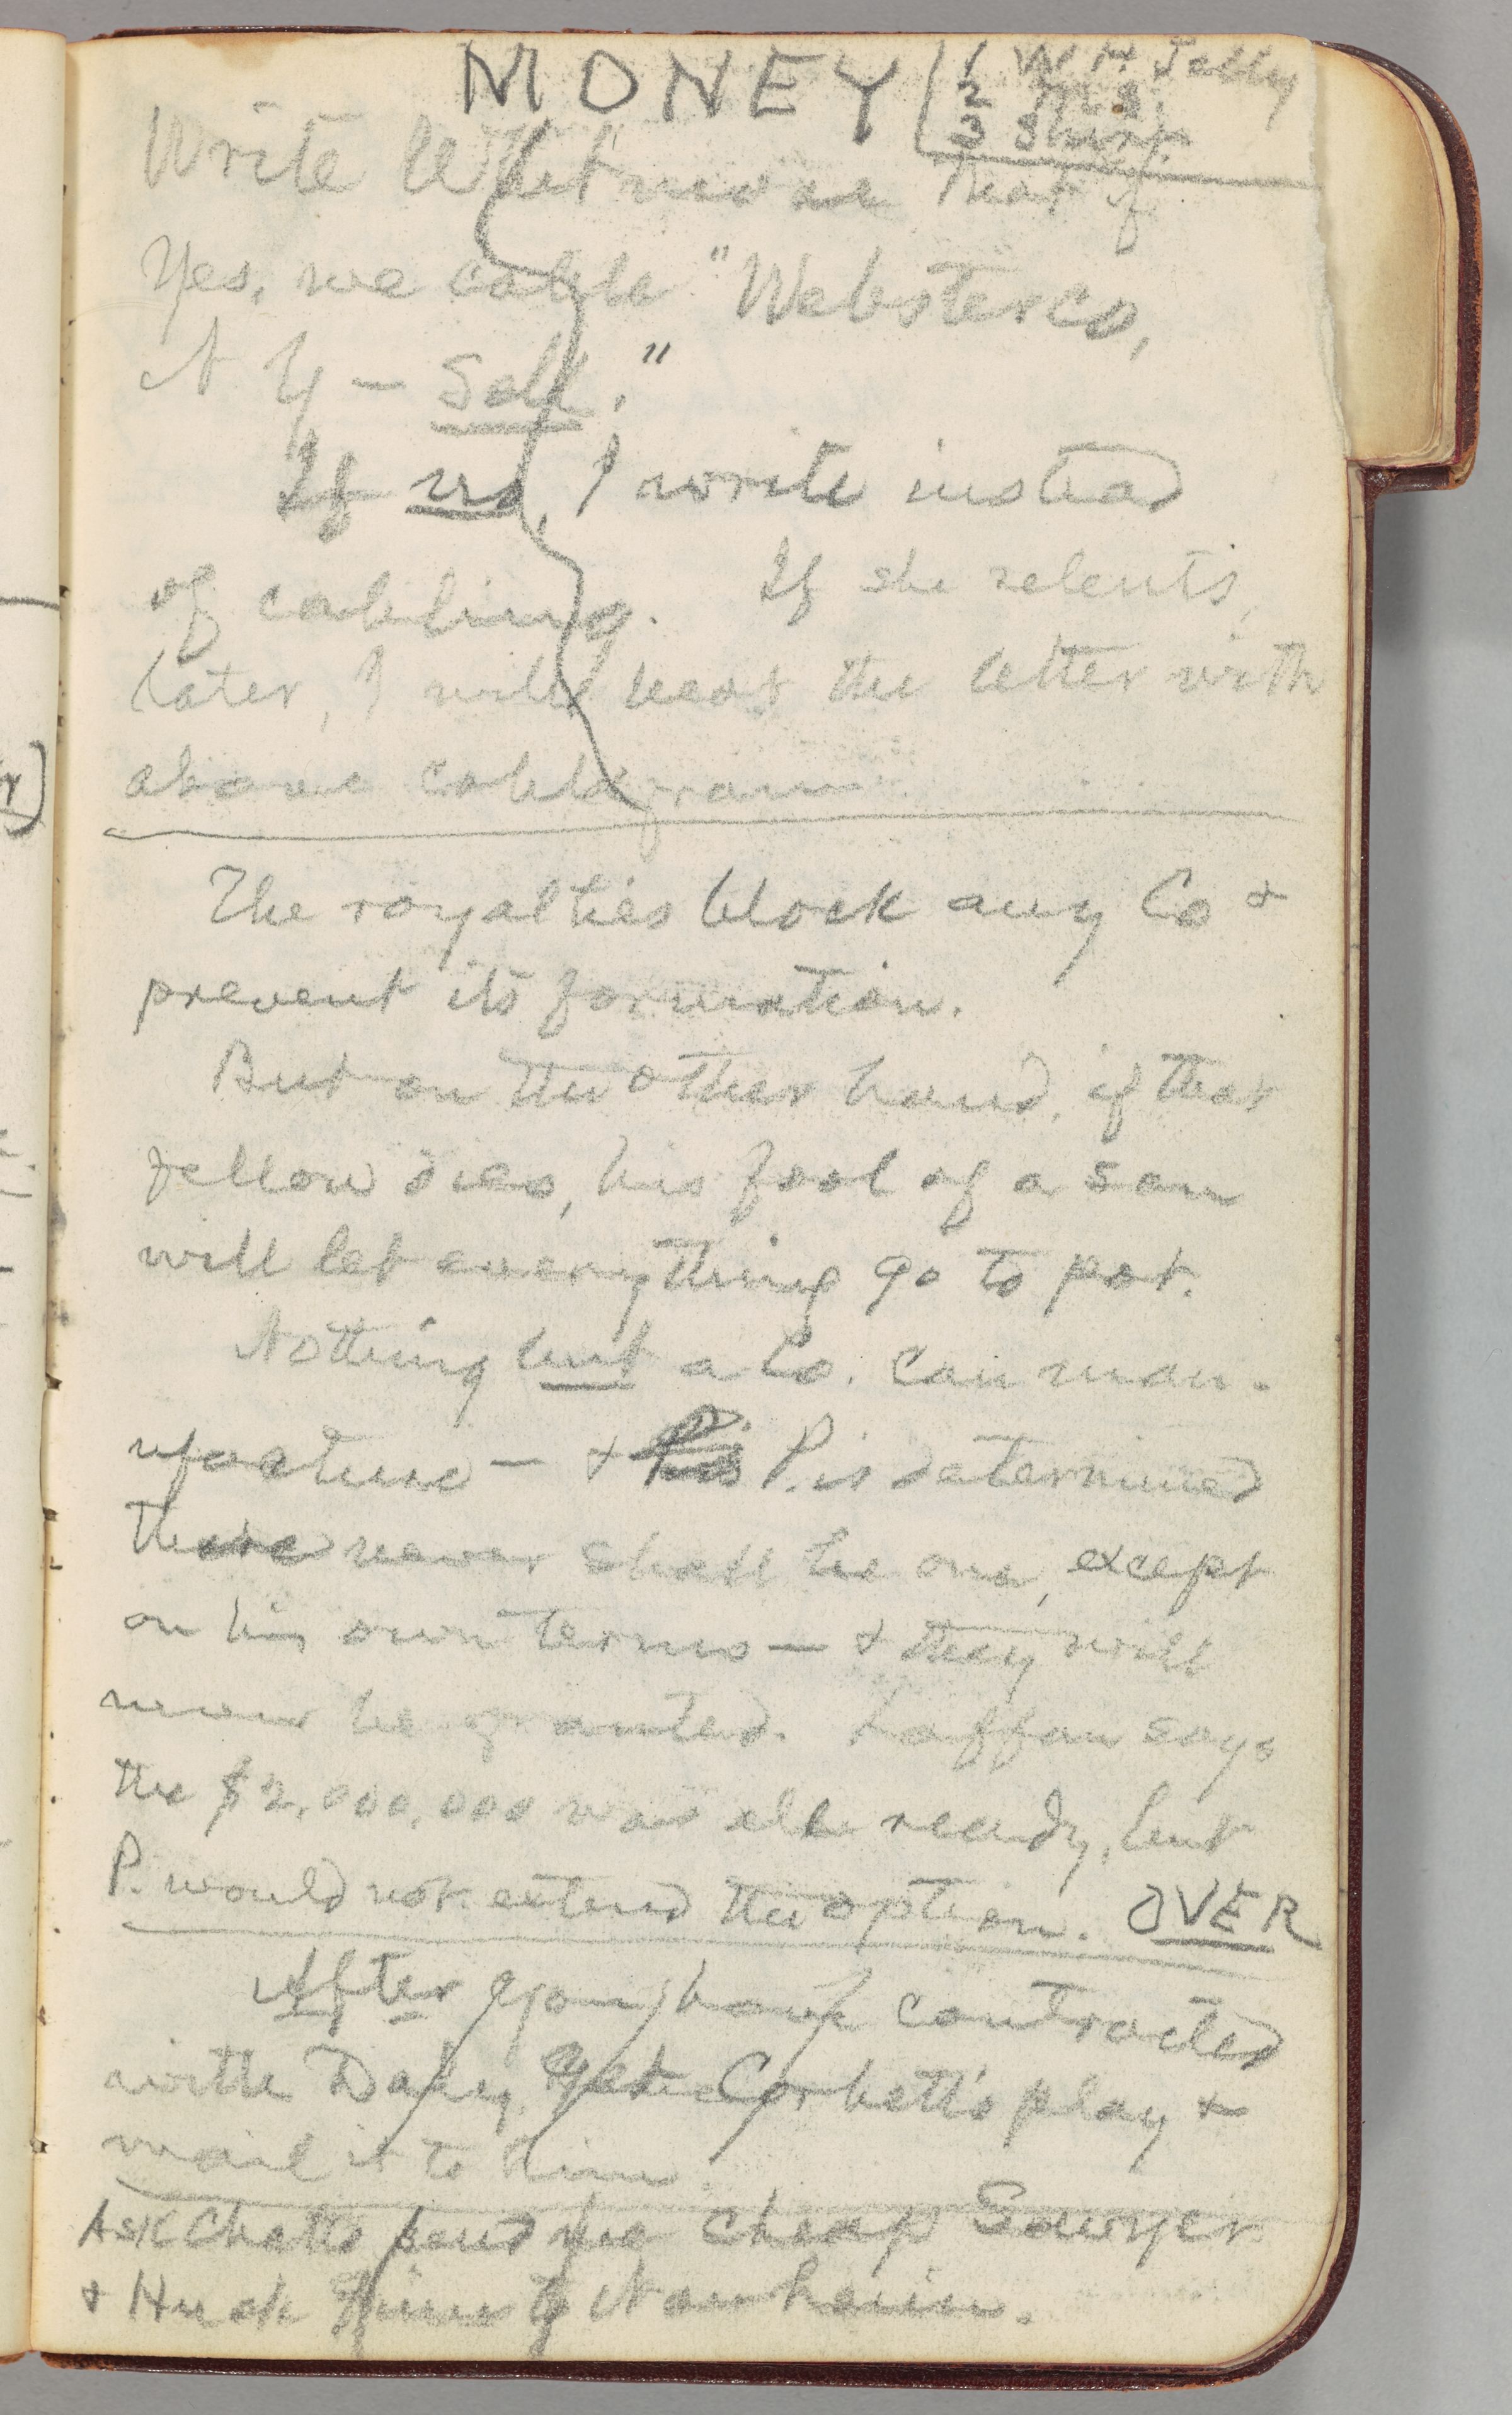 MONEY
1 W. H.
2
3 Sharp
Write Whitmore that if
Yes, we cable "Websterco,
N Y – Sell."
If no, I write instead
of cabling. If she relents,
later, I will beat the letter with
above cablegram.
The royalties block any Co &
prevent its formation.
But on the other hand, if that
fellow dies, his fool of a son
will let everything go to pot.
Nothing but a Co. can man-
ufacture — & P. is determined
there never shall be one, except
on his own terms — & they will
never be granted. Laffan says
the $2,000,000 was all ready, but
P. would not extend the option. OVER
After you have contracted
with Daly, get Corbett's play &
mail it to him.
Ask Chatto send me cheap Sawyer
& Huck Finn to Nauheim.
r)